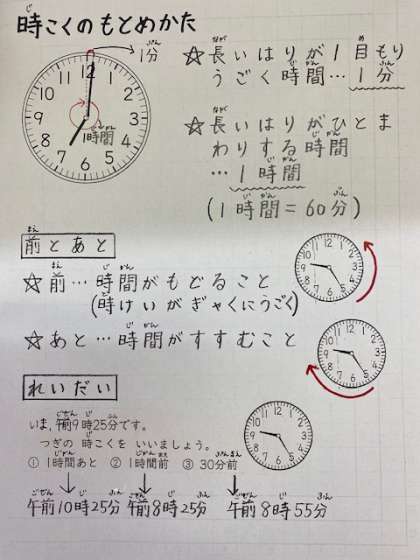 時こくのもとめかた
1分
1時間
☆長いはりが1目もり
うごく時間…1分
☆長いはりがひとま
わりする時間
…1時間
(1時間=60分)
前とあと
☆前…時間がもどること
(時けいがぎゃくにうごく)
☆あと…時間がすすむこと
れいだい
いま,午前9時25分です。
つぎの 時こくを いいましょう。
① 1時間あと ② 1時間前 ③ 30分前
午前10時25分 午前8時25分 午前8時55分